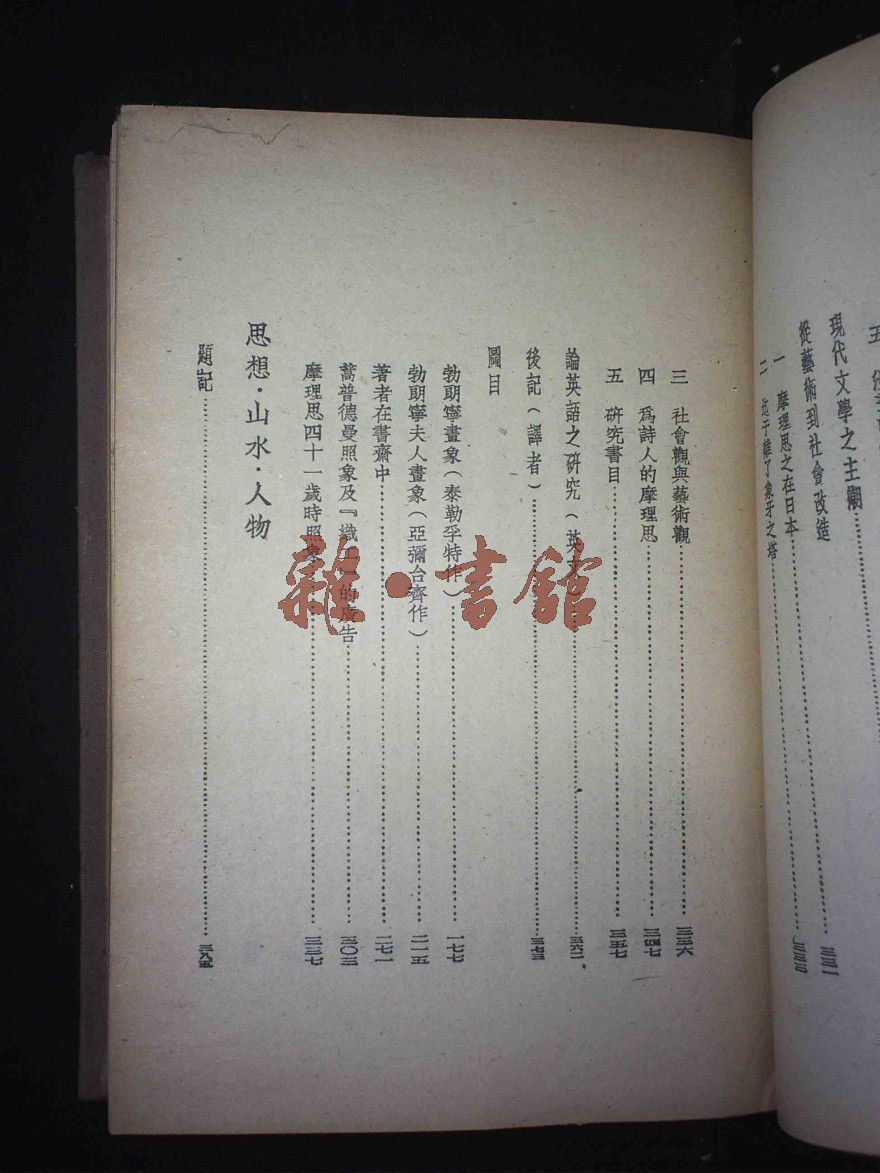 現代文學之主潮……三三一
從藝術到社會改造
一 摩理思之在日本……三三三
二 迄于離了象牙之塔
三 社會觀與藝術觀……三三六
四 爲詩人的摩理思……三四七
五 硏究書目……三五七
論英語之硏究(英文)……三六二
後記(譯者)……三七三
圖目
勃朗寧畫象(泰勒孚特作)……一七七
勃朗寧夫人畫象(亞彌台齊作)……二一五
著者在書齋中……二七一
蒿普德曼照象及『織工』的廣告……三〇三
摩理思四十一歲時照象……三三七
思想·山水·人物
題記……三八五
雜·書館